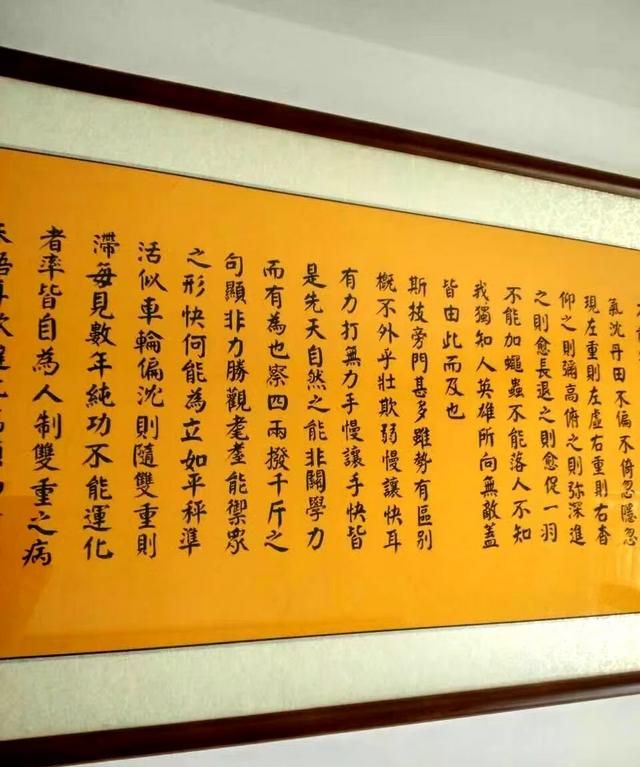 氣沈丹田不偏不倚忽隱忽
現左重則左虛右重則右杳
仰之則彌高俯之則弥深進
之則愈長退之則愈促一羽
不能加蠅蟲不能落人不知
我獨知人英雄所向無敵蓋
皆由此而及也
斯技旁門甚多雖勢有區別
概不外乎壯欺弱慢讓快耳
有力打無力手慢讓手快皆
是先天自然之能非關學力
而有為也察四兩撥千斤之
句顯非力勝觀耄耋能禦眾
之形快何能為立如平秤準
活似車輪偏沈則隨雙重則
滯每見數年純功不能運化
者率皆自為人制雙重之病